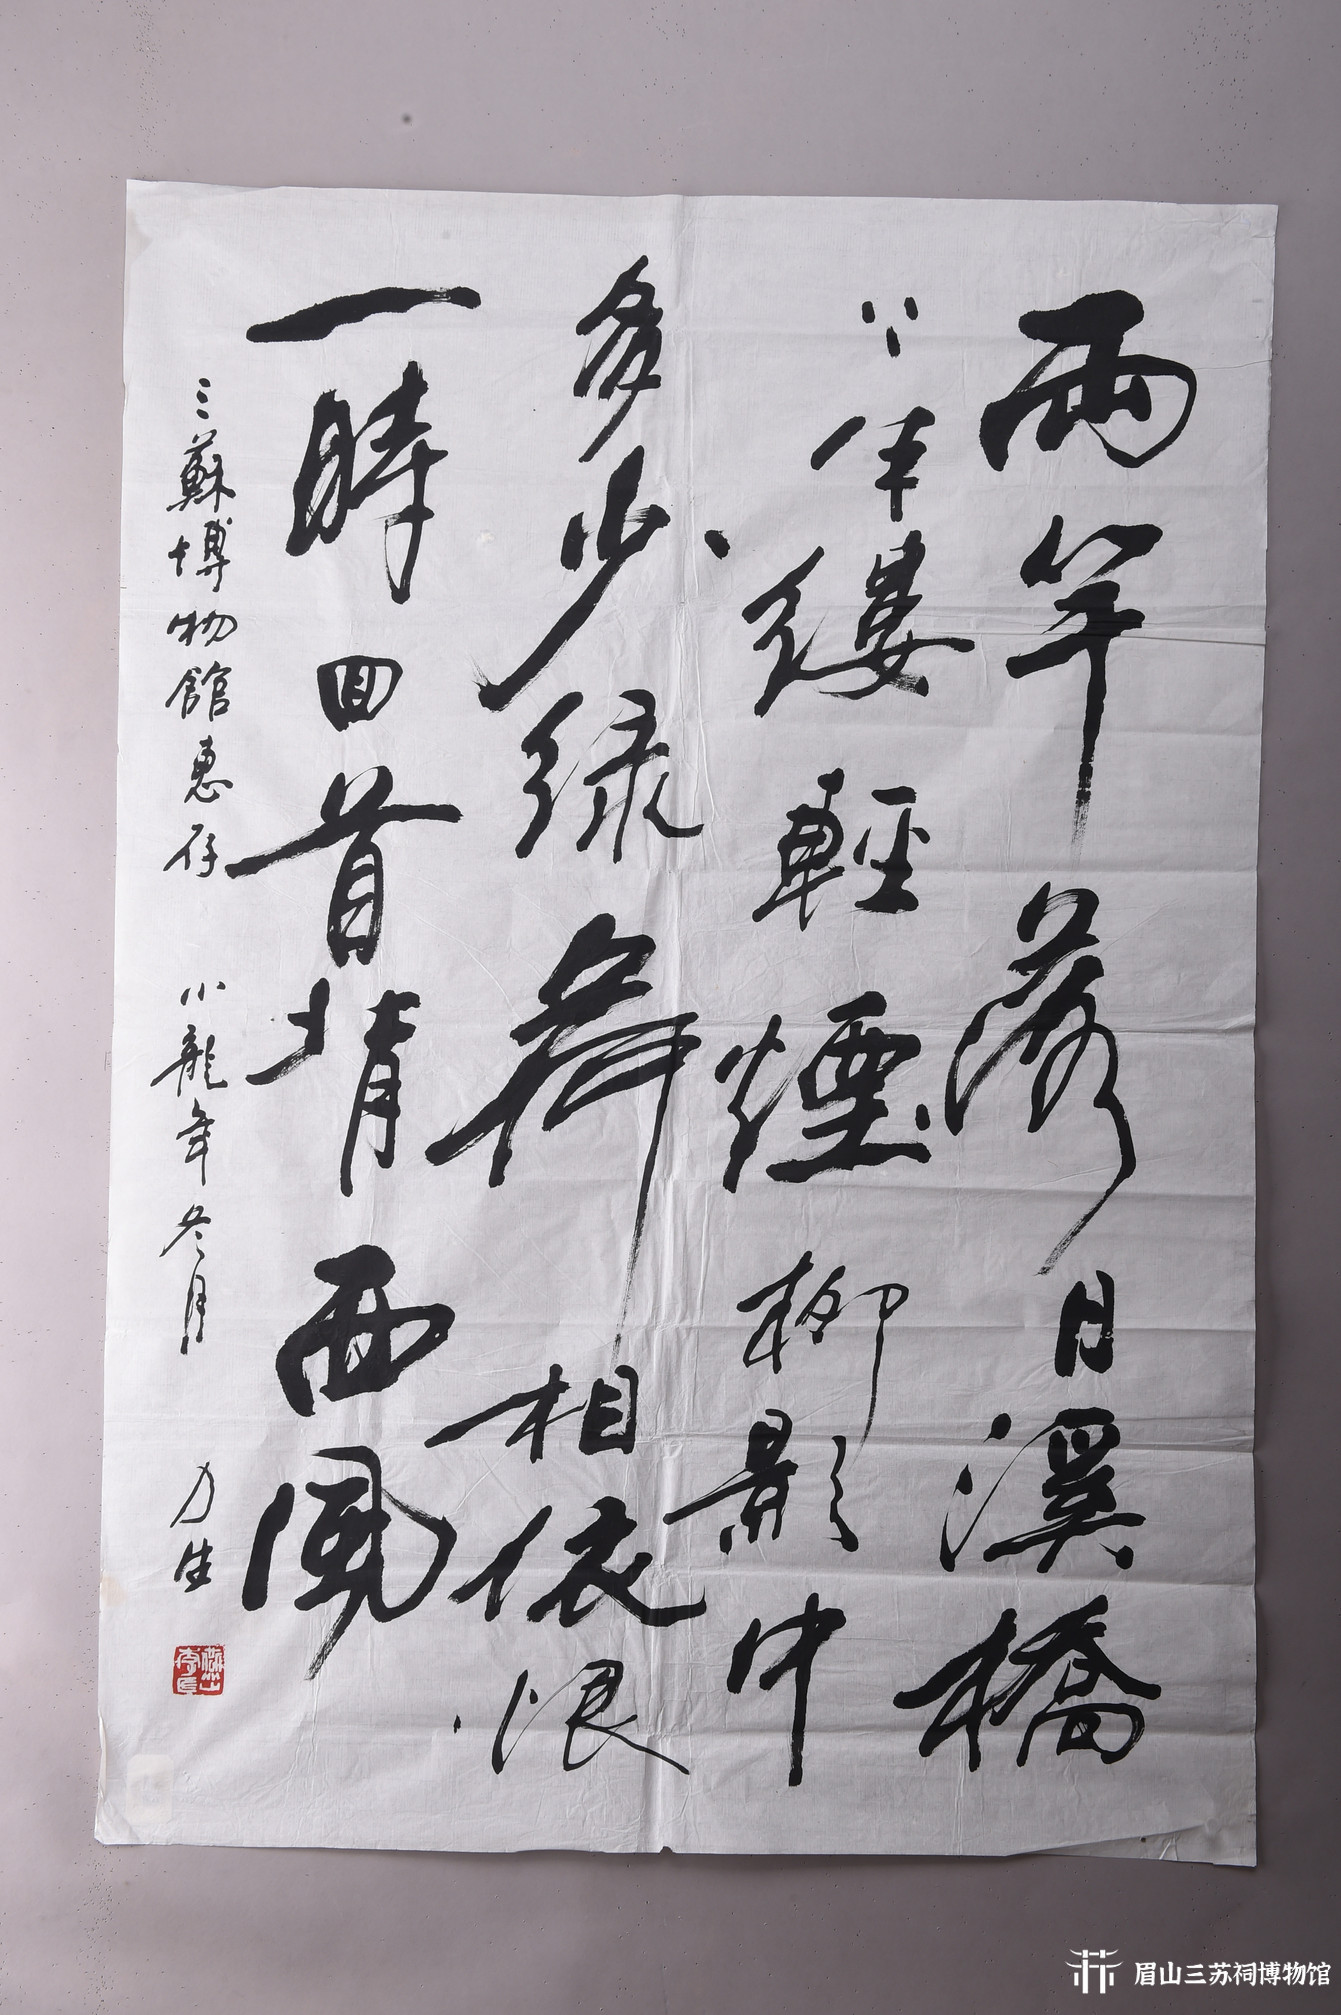 兩竿落日溪橋
上半縷輕煙柳影中
多少綠荷相依恨
一時回首背西風
三蘇博物館惠存 小龍年冬月 力生
眉山三苏祠博物馆